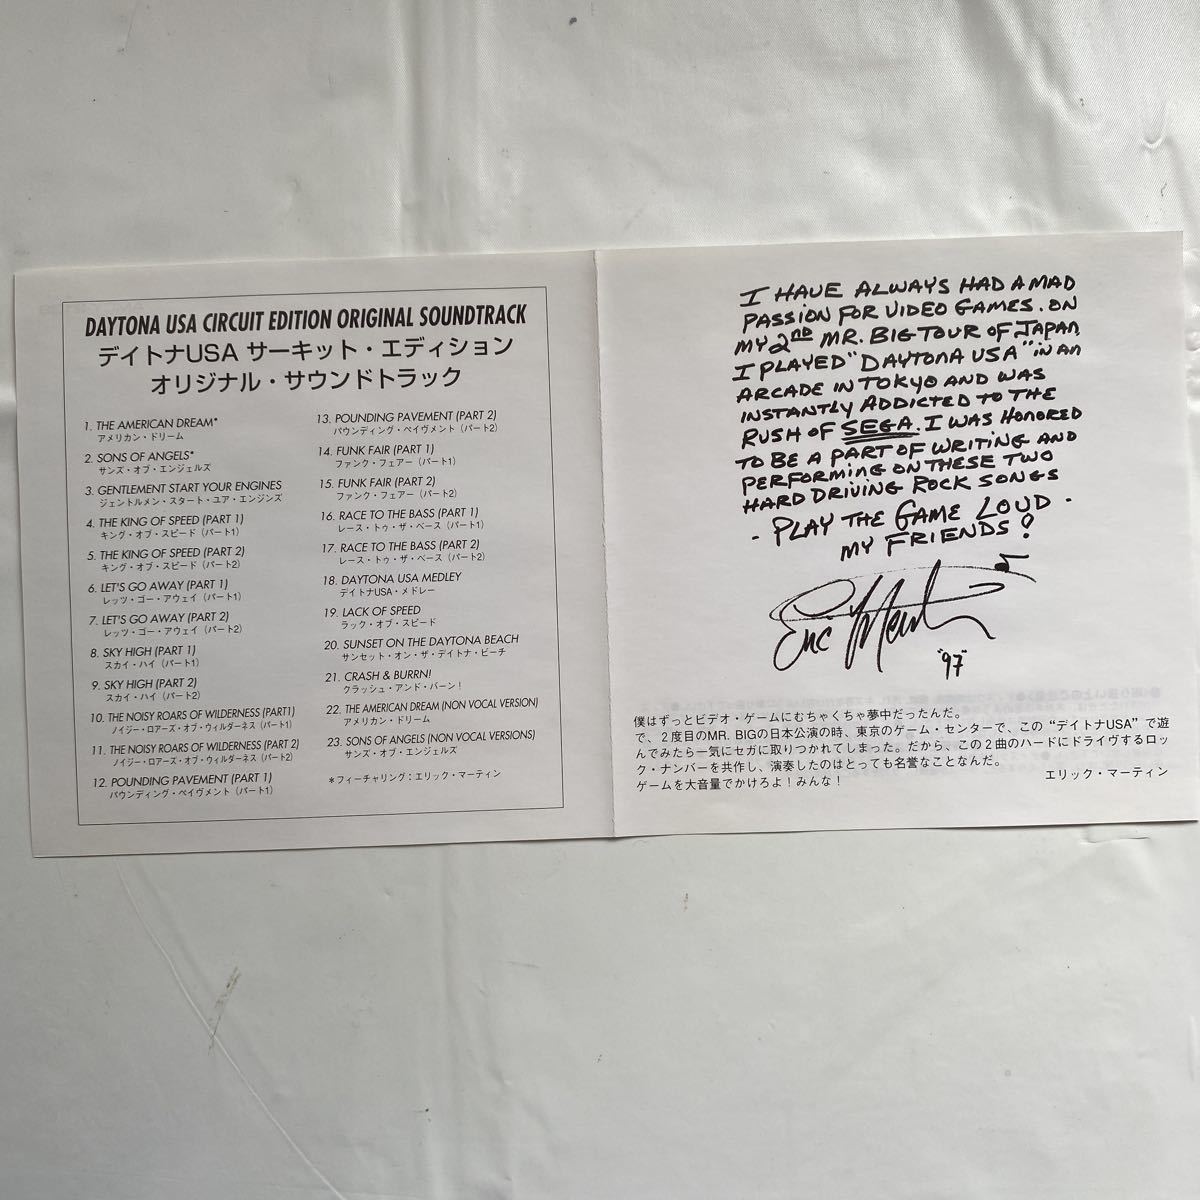 DAYTONA USA CIRCUIT EDITION ORIGINAL SOUNDTRACK
デイトナUSA サーキット・エディション
オリジナル・サウンドトラック
1. THE AMERICAN DREAM*
アメリカン・ドリーム
2. SONS OF ANGELS*
サンズ・オブ・エンジェルズ
3. GENTLEMENT START YOUR ENGINES
ジェントルメン・スタート・ユア・エンジンズ
4. THE KING OF SPEED (PART 1)
キング・オブ・スピード（パート1）
5. THE KING OF SPEED (PART 2)
キング・オブ・スピード（パート2）
6. LET'S GO AWAY (PART 1)
レッツ・ゴー・アウェイ（パート1）
7. LET'S GO AWAY (PART 2)
レッツ・ゴー・アウェイ（パート2）
8. SKY HIGH (PART 1)
スカイ・ハイ（パート1）
9. SKY HIGH (PART 2)
スカイ・ハイ（パート2）
10. THE NOISY ROARS OF WILDERNESS (PART1)
ノイジー・ロアーズ・オブ・ウィルダーネス（パート1）
11. THE NOISY ROARS OF WILDERNESS (PART 2)
ノイジー・ロアーズ・オブ・ウィルダーネス（パート2）
12. POUNDING PAVEMENT (PART 1)
パウンディング・ペイヴメント（パート1）
13. POUNDING PAVEMENT (PART 2)
パウンディング・ペイヴメント（パート2）
14. FUNK FAIR (PART 1)
ファンク・フェアー（パート1）
15. FUNK FAIR (PART 2)
ファンク・フェアー（パート2）
16. RACE TO THE BASS (PART 1)
レース・トゥ・ザ・ベース（パート1）
17. RACE TO THE BASS (PART 2)
レース・トゥ・ザ・ベース（パート2）
18. DAYTONA USA MEDLEY
デイトナUSA・メドレー
19. LACK OF SPEED
ラック・オブ・スピード
20. SUNSET ON THE DAYTONA BEACH
サンセット・オン・ザ・デイトナ・ビーチ
21. CRASH & BURRN!
クラッシュ・アンド・バーン！
22. THE AMERICAN DREAM (NON VOCAL VERSION)
アメリカン・ドリーム
23. SONS OF ANGELS (NON VOCAL VERSIONS)
サンズ・オブ・エンジェルズ
*フィーチャリング：エリック・マーティン
I HAVE ALWAYS HAD A MAD
PASSION FOR VIDEO GAMES. ON
MY 2ND MR. BIG TOUR OF JAPAN,
I PLAYED "DAYTONA USA" IN AN
ARCADE IN TOKYO AND WAS
INSTANTLY ADDICTED TO THE
RUSH OF SEGA. I WAS HONORED
TO BE A PART OF WRITING AND
PERFORMING ON THESE TWO
HARD DRIVING ROCK SONGS
- PLAY THE GAME LOUD -
MY FRIENDS!
Eric Martin
"97"
僕はずっとビデオ・ゲームにむちゃくちゃ夢中だったんだ。
で、２度目のMR. BIGの日本公演の時、東京のゲーム・センターで、この“デイトナUSA”で遊
んでみたら一気にセガに取りつかれてしまった。だから、この２曲のハードにドライヴするロッ
ク・ナンバーを共作し、演奏したのはとっても名誉なことなんだ。
ゲームを大音量でかけろよ！みんな！
エリック・マーティン